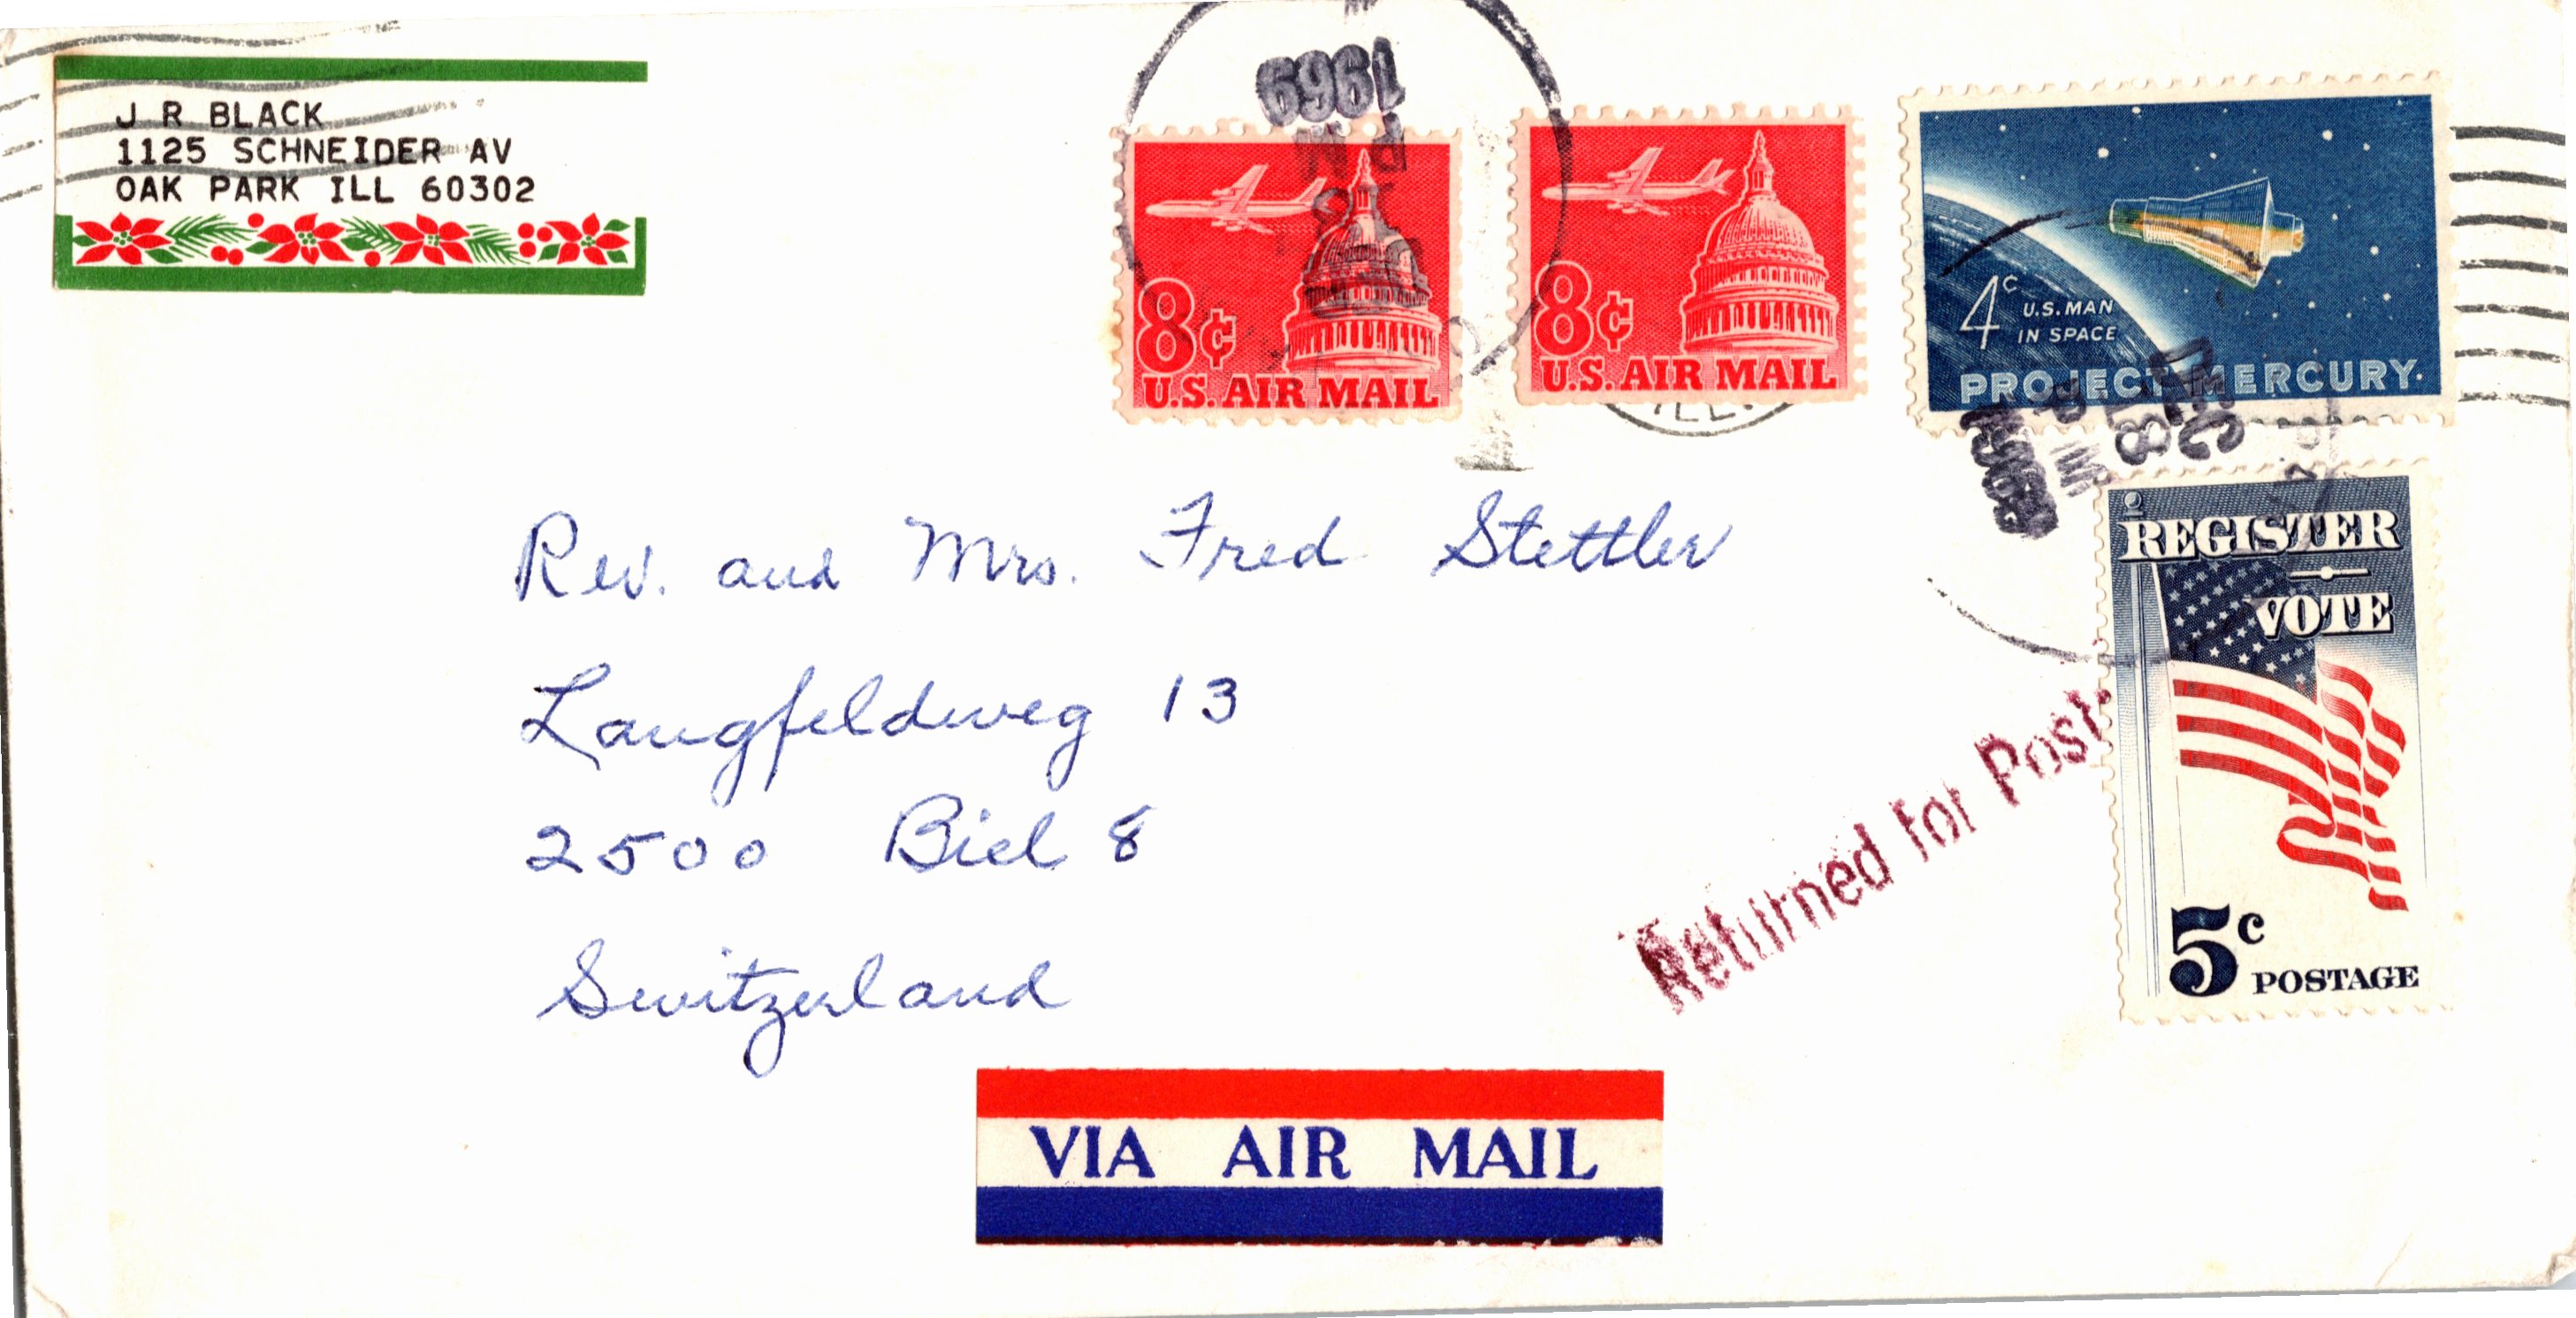 J R BLACK
1125 SCHNEIDER AV
OAK PARK ILL 60302
1969
PM
8¢
U.S. AIR MAIL
8¢
U.S. AIR MAIL
ILL.
4c U.S. MAN
IN SPACE
PROJECT MERCURY
DEC
8
PM
REGISTER
VOTE
5c POSTAGE
Rev. and Mrs. Fred Stettler
Langfeldweg 13
2500 Biel 8
Switzerland
Returned for Post
VIA AIR MAIL